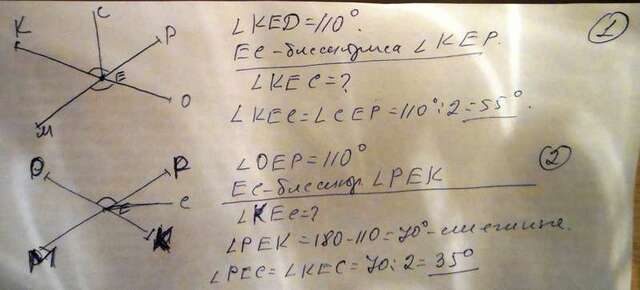 K C P
E
M O
∠KED=110°.
EC-биссектриса ∠KEP.
∠KEC=?
∠KEC=∠CEP=110°:2=55°.
1
O P
E C
M K
∠OEP=110°
EC-биссект ∠PEK
∠KEC=?
∠PEK=180-110=70°-смежные.
∠PEC=∠KEC=70:2=35°
2